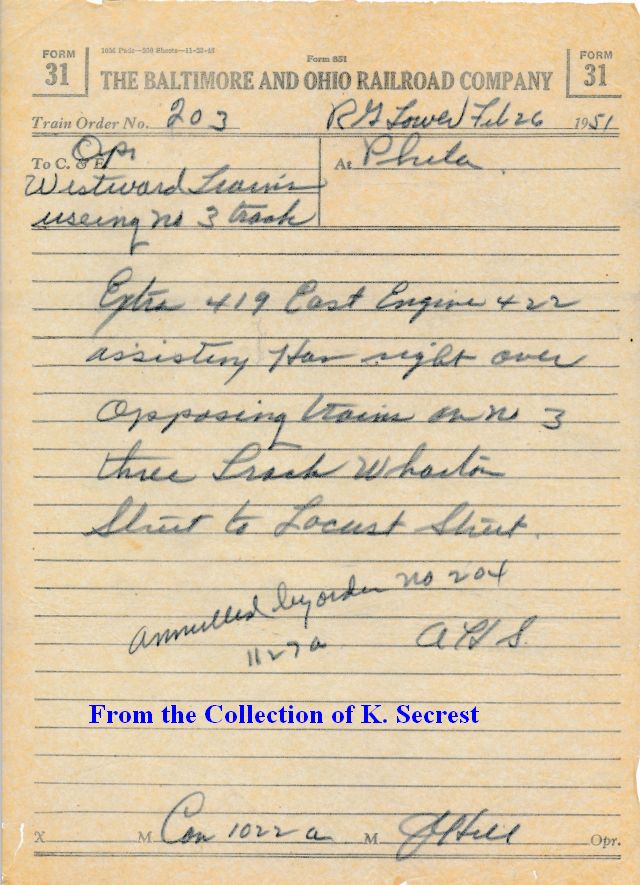 FORM 31
10M Pads—350 Sheets—11-22-48
Form 831
FORM 31
THE BALTIMORE AND OHIO RAILROAD COMPANY
Train Order No. 203 RG Tower Feb 26 1951
To C. & E. Opr At Phila
Westward Trains
useing no 3 track
Extra 419 East Engine 422
assisting Has right over
opposing trains on no 3
three Track Wharton
Street to Locust Street.
annulled by order no 204
1127a AHS
From the Collection of K. Secrest
X M Com 1022a M J Hill Opr.